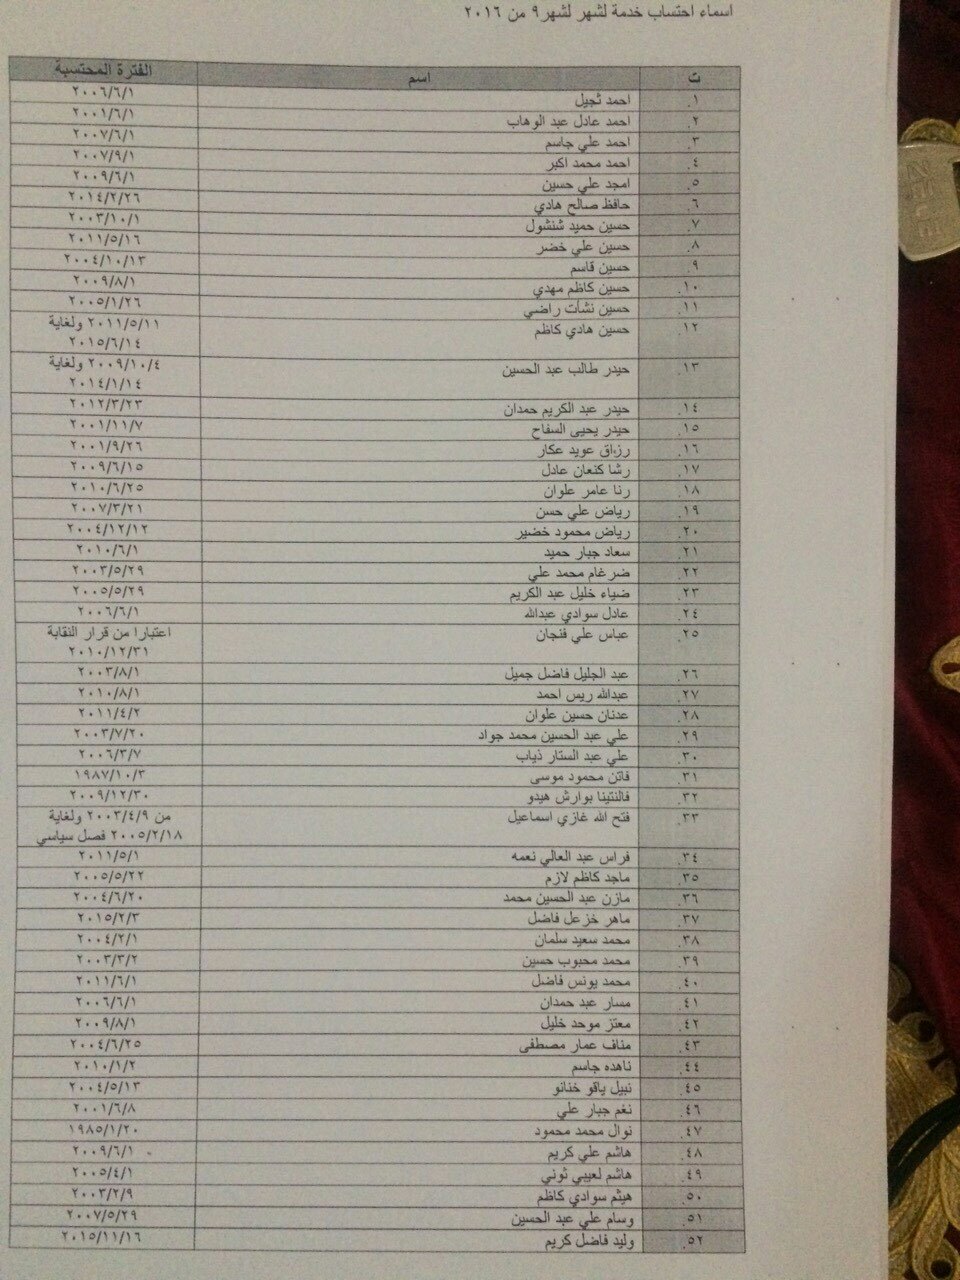 اسماء احتساب خدمة لشهر لشهر٩ من ٢٠١٦
ت اسم الفترة المحتسبة
١. احمد ثجيل ٢٠٠٦/٦/١
٢. احمد عادل عبد الوهاب ٢٠٠١/٦/١
٣. احمد علي جاسم ٢٠٠٧/٦/١
٤. احمد محمد اكبر ٢٠٠٧/٩/١
٥. امجد علي حسين ٢٠٠٩/٦/١
٦. حافظ صالح هادي ٢٠١٤/٢/٢٦
٧. حسين حميد شنشول ٢٠٠٣/١٠/١
٨. حسين علي خضر ٢٠١١/٥/١٦
٩. حسين قاسم ٢٠٠٤/١٠/١٣
١٠. حسين كاظم مهدي ٢٠٠٩/٨/١
١١. حسين نشأت راضي ٢٠٠٥/١/٢٦
١٢. حسين هادي كاظم ٢٠١١/٥/١١ ولغاية
٢٠١٥/٦/١٤
١٣. حيدر طالب عبد الحسين ٢٠٠٩/١٠/٤ ولغاية
٢٠١٤/١/١٤
١٤. حيدر عبد الكريم حمدان ٢٠١٢/٣/٢٣
١٥. حيدر يحيى السفاح ٢٠٠١/١١/٧
١٦. رزاق عويد عكار ٢٠٠١/٩/٢٦
١٧. رشا كنعان عادل ٢٠٠٩/٦/١٥
١٨. رنا عامر علوان ٢٠١٠/٦/٢٥
١٩. رياض علي حسن ٢٠٠٧/٣/٢١
٢٠. رياض محمود خضير ٢٠٠٤/١٢/١٢
٢١. سعاد جبار حميد ٢٠١٠/٦/١
٢٢. ضرغام محمد علي ٢٠٠٣/٥/٢٩
٢٣. ضياء خليل عبد الكريم ٢٠٠٥/٥/٢٩
٢٤. عادل سوادي عبدالله ٢٠٠٦/٦/١
٢٥. عباس علي فنجان اعتبارا من قرار النقابة
٢٠١٠/١٢/٣١
٢٦. عبد الجليل فاضل جميل ٢٠٠٣/٨/١
٢٧. عبدالله ريس احمد ٢٠١٠/٨/١
٢٨. عدنان حسين علوان ٢٠١١/٤/٢
٢٩. علي عبد الحسين محمد جواد ٢٠٠٣/٧/٢٠
٣٠. علي عبد الستار ذياب ٢٠٠٦/٣/٧
٣١. فاتن محمود موسى ١٩٨٧/١٠/٣
٣٢. فالنتينا بوارش هيدو ٢٠٠٩/١٢/٣٠
٣٣. فتح الله غازي اسماعيل من ٢٠٠٣/٤/٩ ولغاية
٢٠٠٥/٢/١٨ فصل سياسي
٣٤. فراس عبد العالي نعمه ٢٠١١/٥/١
٣٥. ماجد كاظم لازم ٢٠٠٥/٥/٢٢
٣٦. مازن عبد الحسين محمد ٢٠٠٤/٦/٢٠
٣٧. ماهر خزعل فاضل ٢٠١٥/٢/٣
٣٨. محمد سعيد سلمان ٢٠٠٤/٢/١
٣٩. محمد محبوب حسين ٢٠٠٣/٣/٢
٤٠. محمد يونس فاضل ٢٠١١/٦/١
٤١. مسار عبد حمدان ٢٠٠٦/٦/١
٤٢. معتز موحد خليل ٢٠٠٩/٨/١
٤٣. مناف عمار مصطفى ٢٠٠٤/٦/٢٥
٤٤. ناهده جاسم ٢٠١٠/١/٢
٤٥. نبيل ياقو خنانو ٢٠٠٤/٥/١٣
٤٦. نغم جبار علي ٢٠٠١/٦/٨
٤٧. نوال محمد محمود ١٩٨٥/١/٢٠
٤٨. هاشم علي كريم ٢٠٠٩/٦/١
٤٩. هاشم لعيبي ثوني ٢٠٠٥/٤/١
٥٠. هيثم سوادي كاظم ٢٠٠٣/٢/٩
٥١. وسام علي عبد الحسين ٢٠٠٧/٥/٢٩
٥٢. وليد فاضل كريم ٢٠١٥/١١/١٦